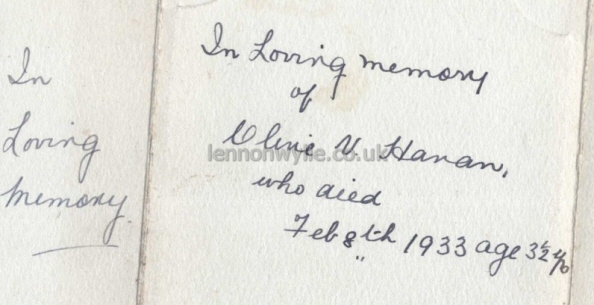 In
Loving
Memory.
In Loving memory
of
Olive V. Hanan,
lennonwylie.co.uk
who died
Feb 8th 1933 age 3½